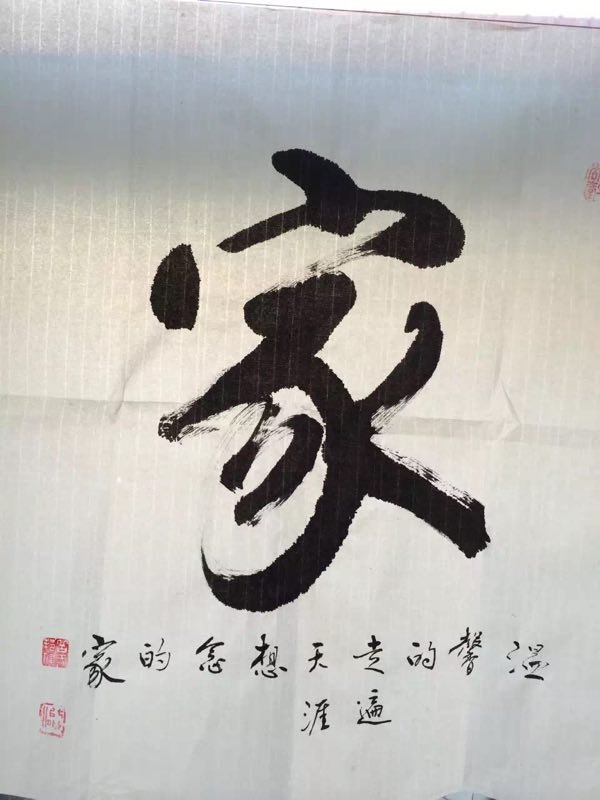 家
温馨的走遍天涯想念的家